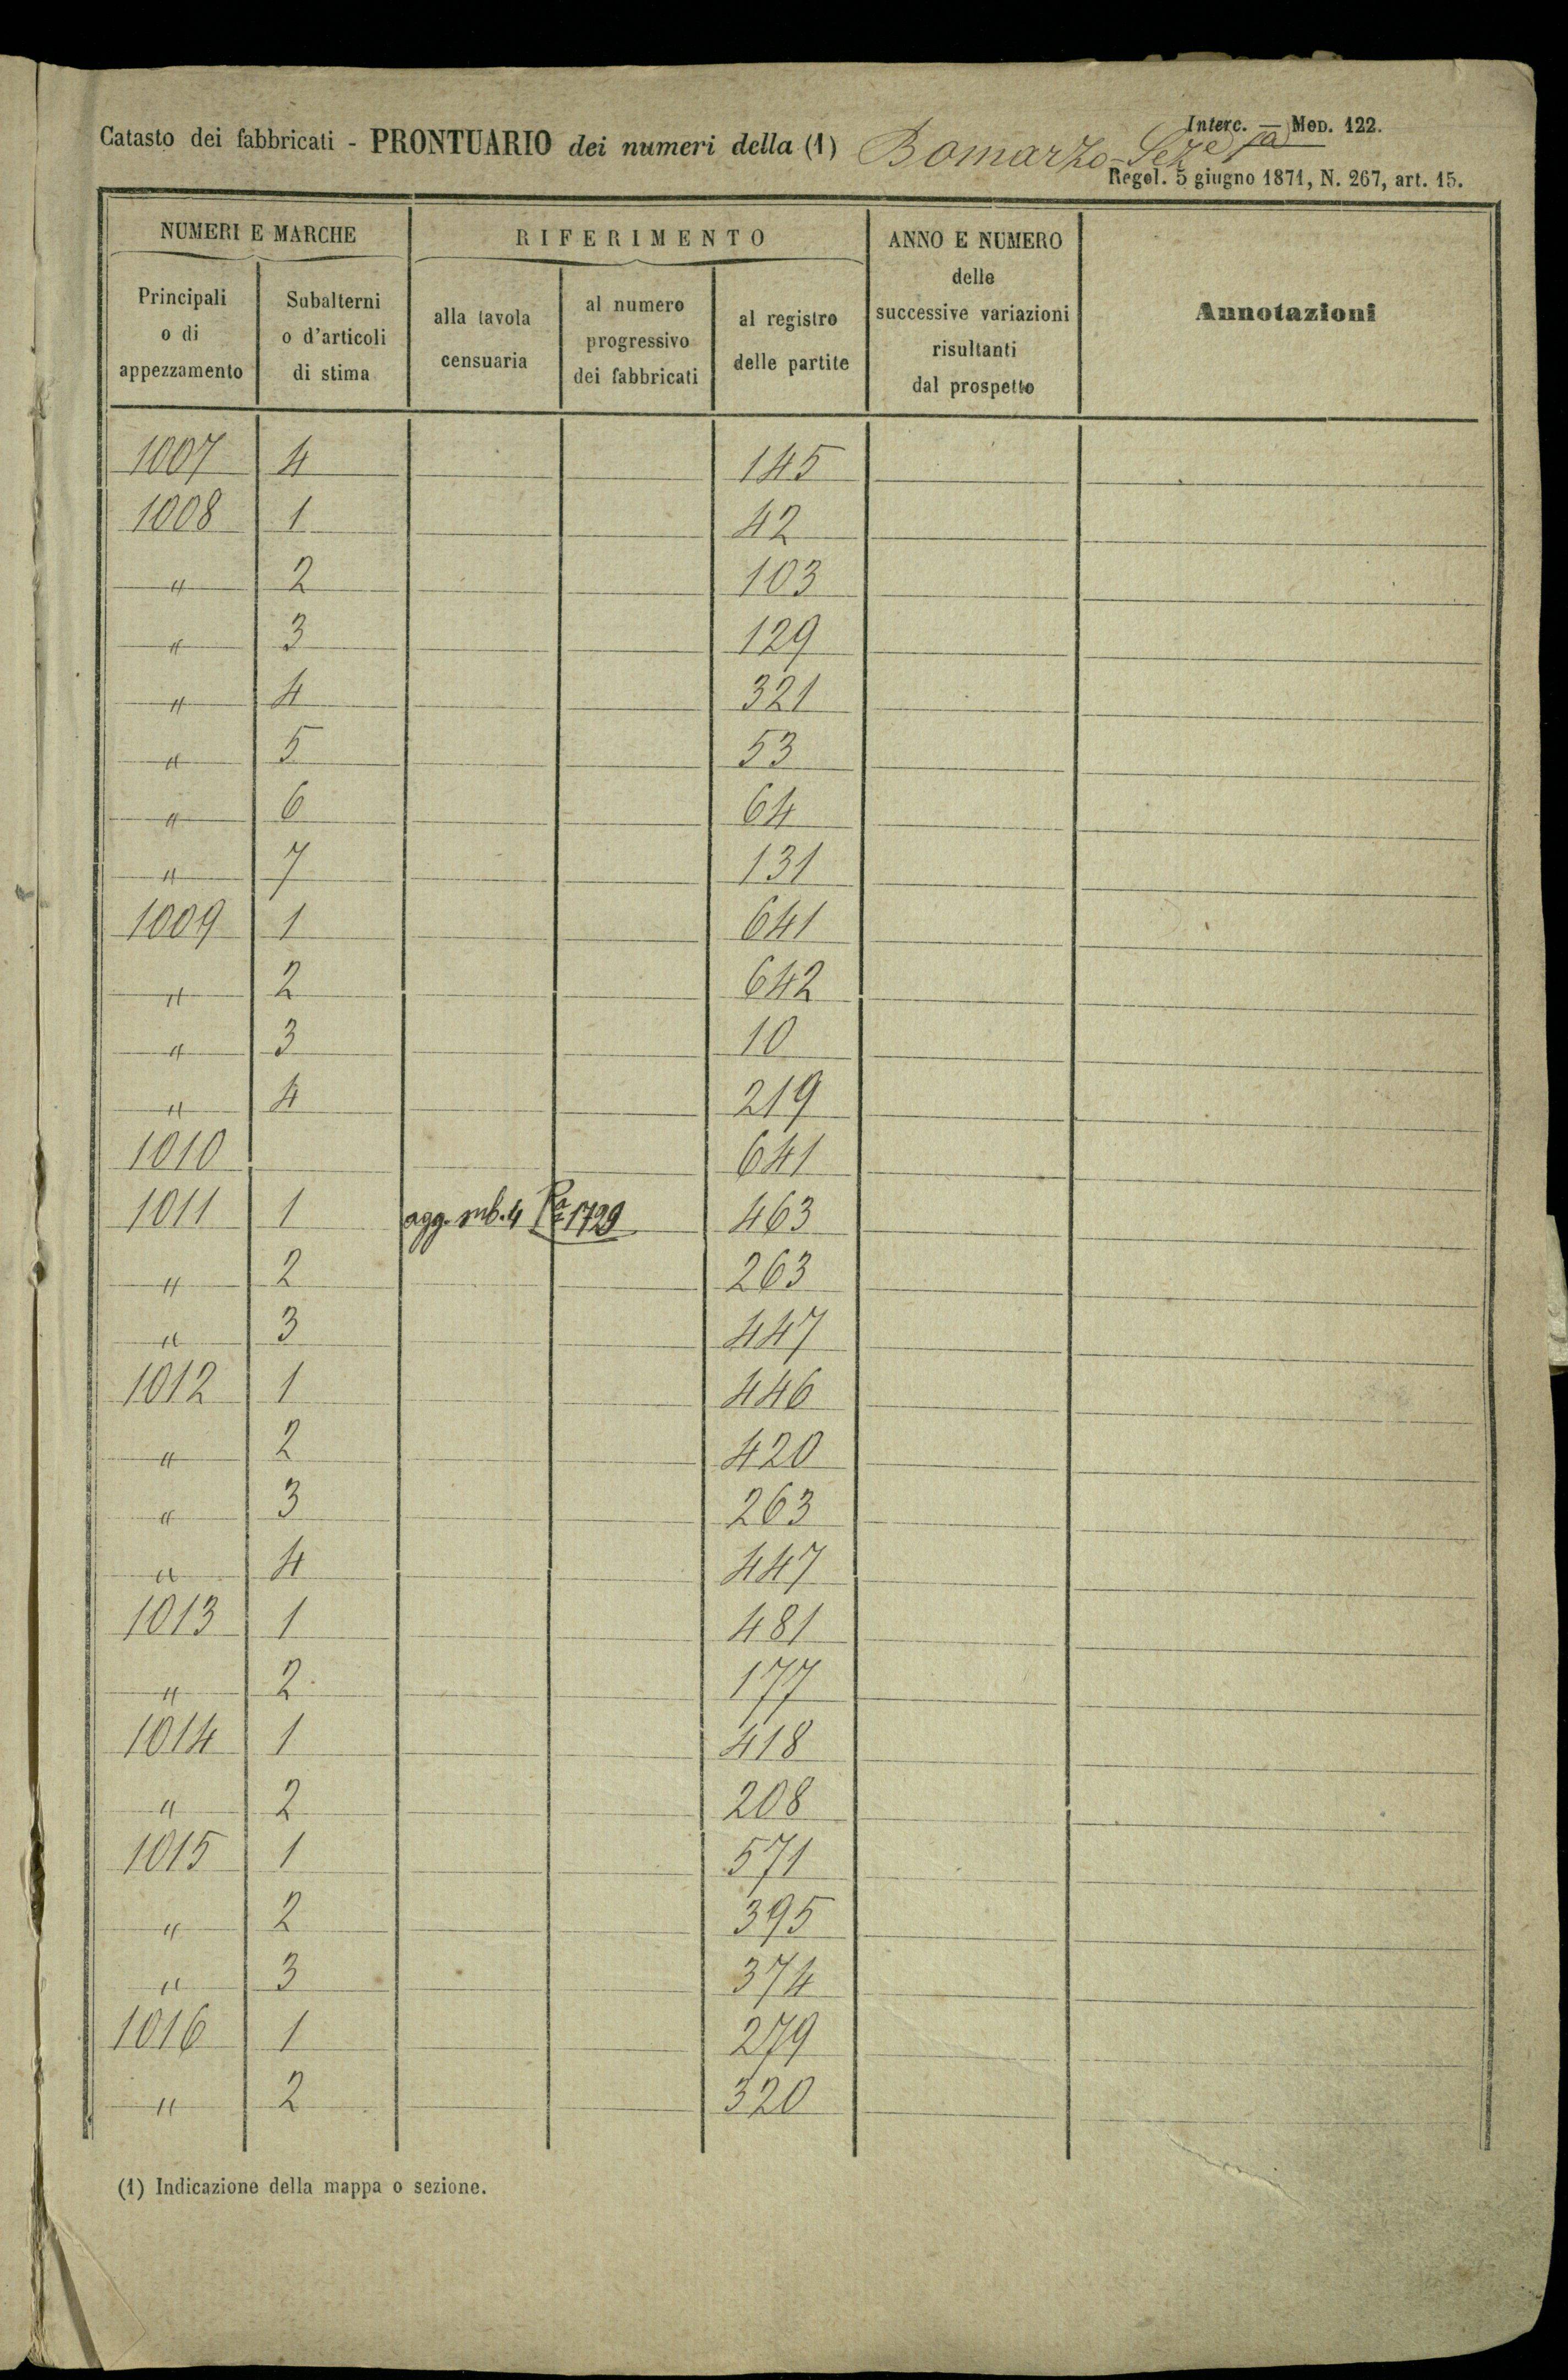 Interc. — Mod. 122.
Catasto dei fabbricati - PRONTUARIO dei numeri della (1) Bomarzo - Seze 1a
Regol. 5 giugno 1871, N. 267, art. 15.
NUMERI E MARCHE RIFERIMENTO ANNO E NUMERO delle successive variazioni risultanti dal prospetto Annotazioni
Principali o di appezzamento Subalterni o d'articoli di stima alla tavola censuaria al numero progressivo dei fabbricati al registro delle partite
1007 4 145
1008 1 42
" 2 103
" 3 129
" 4 321
" 5 53
" 6 64
" 7 131
1009 1 641
" 2 642
" 3 10
" 4 219
1010 641
1011 1 agg. sub. 4 Pa 1729 463
" 2 263
" 3 447
1012 1 446
" 2 420
" 3 263
" 4 447
1013 1 481
" 2 177
1014 1 418
" 2 208
1015 1 571
" 2 395
" 3 374
1016 1 279
" 2 320
(1) Indicazione della mappa o sezione.